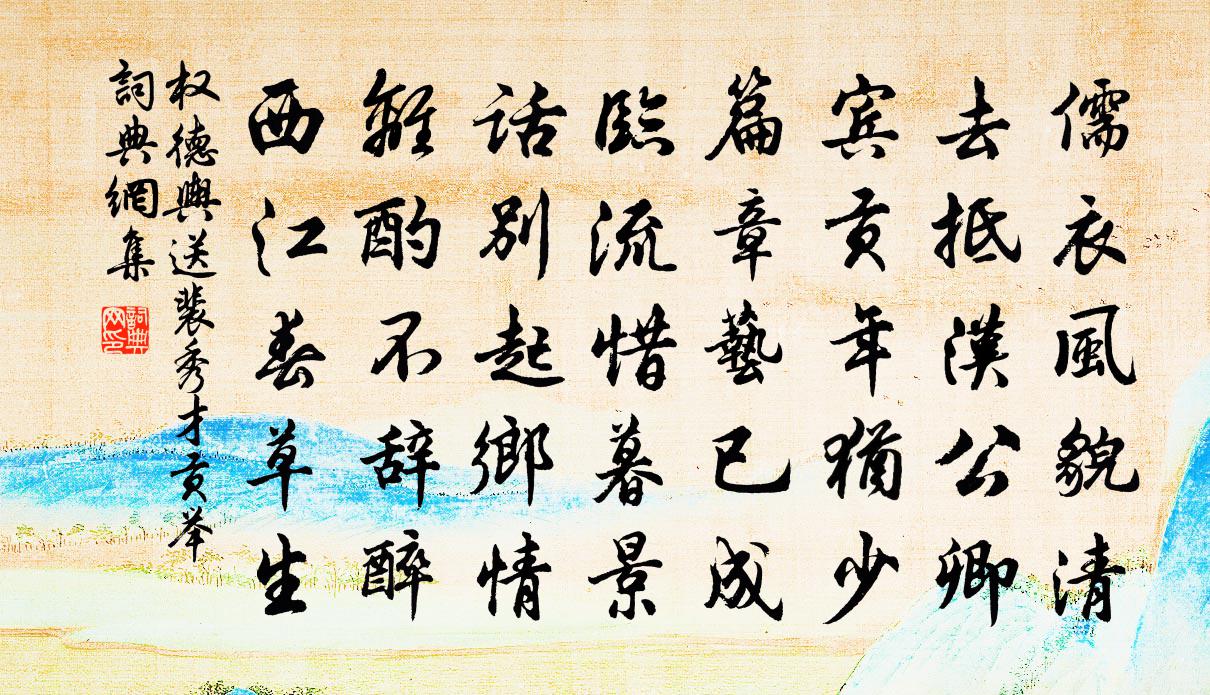 儒衣風貌清
去抵漢公卿
宾貢年猶少
篇章藝已成
臨流惜暮景
話別起鄉情
離酌不辞醉
西江春草生
权德輿送裴秀才貢举
詞典網集
詞典
网印